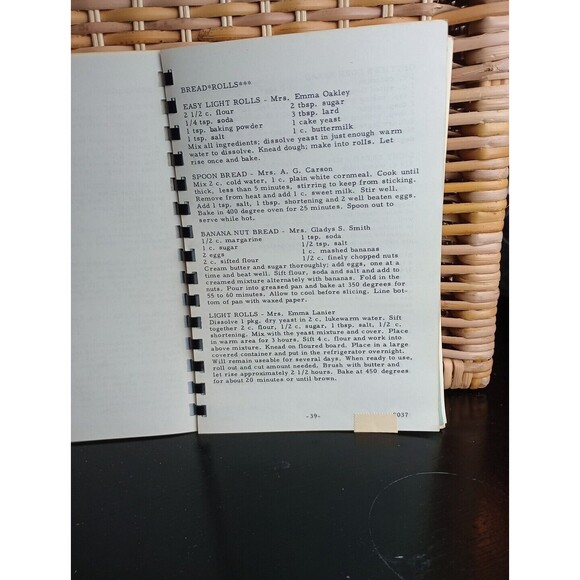 BREAD*ROLLS***
EASY LIGHT ROLLS - Mrs. Emma Oakley
2 1/2 c. flour 2 tbsp. sugar
1/4 tsp. soda 3 tbsp. lard
1 tsp. baking powder 1 cake yeast
1 tsp. salt 1 c. buttermilk
Mix all ingredients; dissolve yeast in just enough warm
water to dissolve. Knead dough; make into rolls. Let
rise once and bake.
SPOON BREAD - Mrs. A. G. Carson
Mix 2 c. cold water, 1 c. plain white cornmeal. Cook until
thick, less than 5 minutes, stirring to keep from sticking.
Remove from heat and add 1 c. sweet milk. Stir well.
Add 1 tsp. salt, 1 tbsp. shortening and 2 well beaten eggs.
Bake in 400 degree oven for 25 minutes. Spoon out to
serve while hot.
BANANA NUT BREAD - Mrs. Gladys S. Smith
1/2 c. margarine 1 tsp. soda
1 c. sugar 1/2 tsp. salt
2 eggs 1 c. mashed bananas
2 c. sifted flour 1/2 c. finely chopped nuts
Cream butter and sugar thoroughly; add eggs, one at a
time and beat well. Sift flour, soda and salt and add to
creamed mixture alternately with bananas. Fold in the
nuts. Pour into greased pan and bake at 350 degrees for
55 to 60 minutes. Allow to cool before slicing. Line bot-
tom of pan with waxed paper.
LIGHT ROLLS - Mrs. Emma Lanier
Dissolve 1 pkg. dry yeast in 2 c. lukewarm water. Sift
together 2 c. flour, 1/2 c. sugar, 1 tbsp. salt, 1/2 c.
shortening. Mix with the yeast mixture and cover. Place
in warm area for 3 hours. Sift 4 c. flour and work into
above mixture. Knead on floured board. Place in a large
covered container and put in the refrigerator overnight.
Will remain useable for several days. When ready to use,
roll out and cut amount needed. Brush with butter and
let rise approximately 2 1/2 hours. Bake at 450 degrees
for about 20 minutes or until brown.
-39- 037